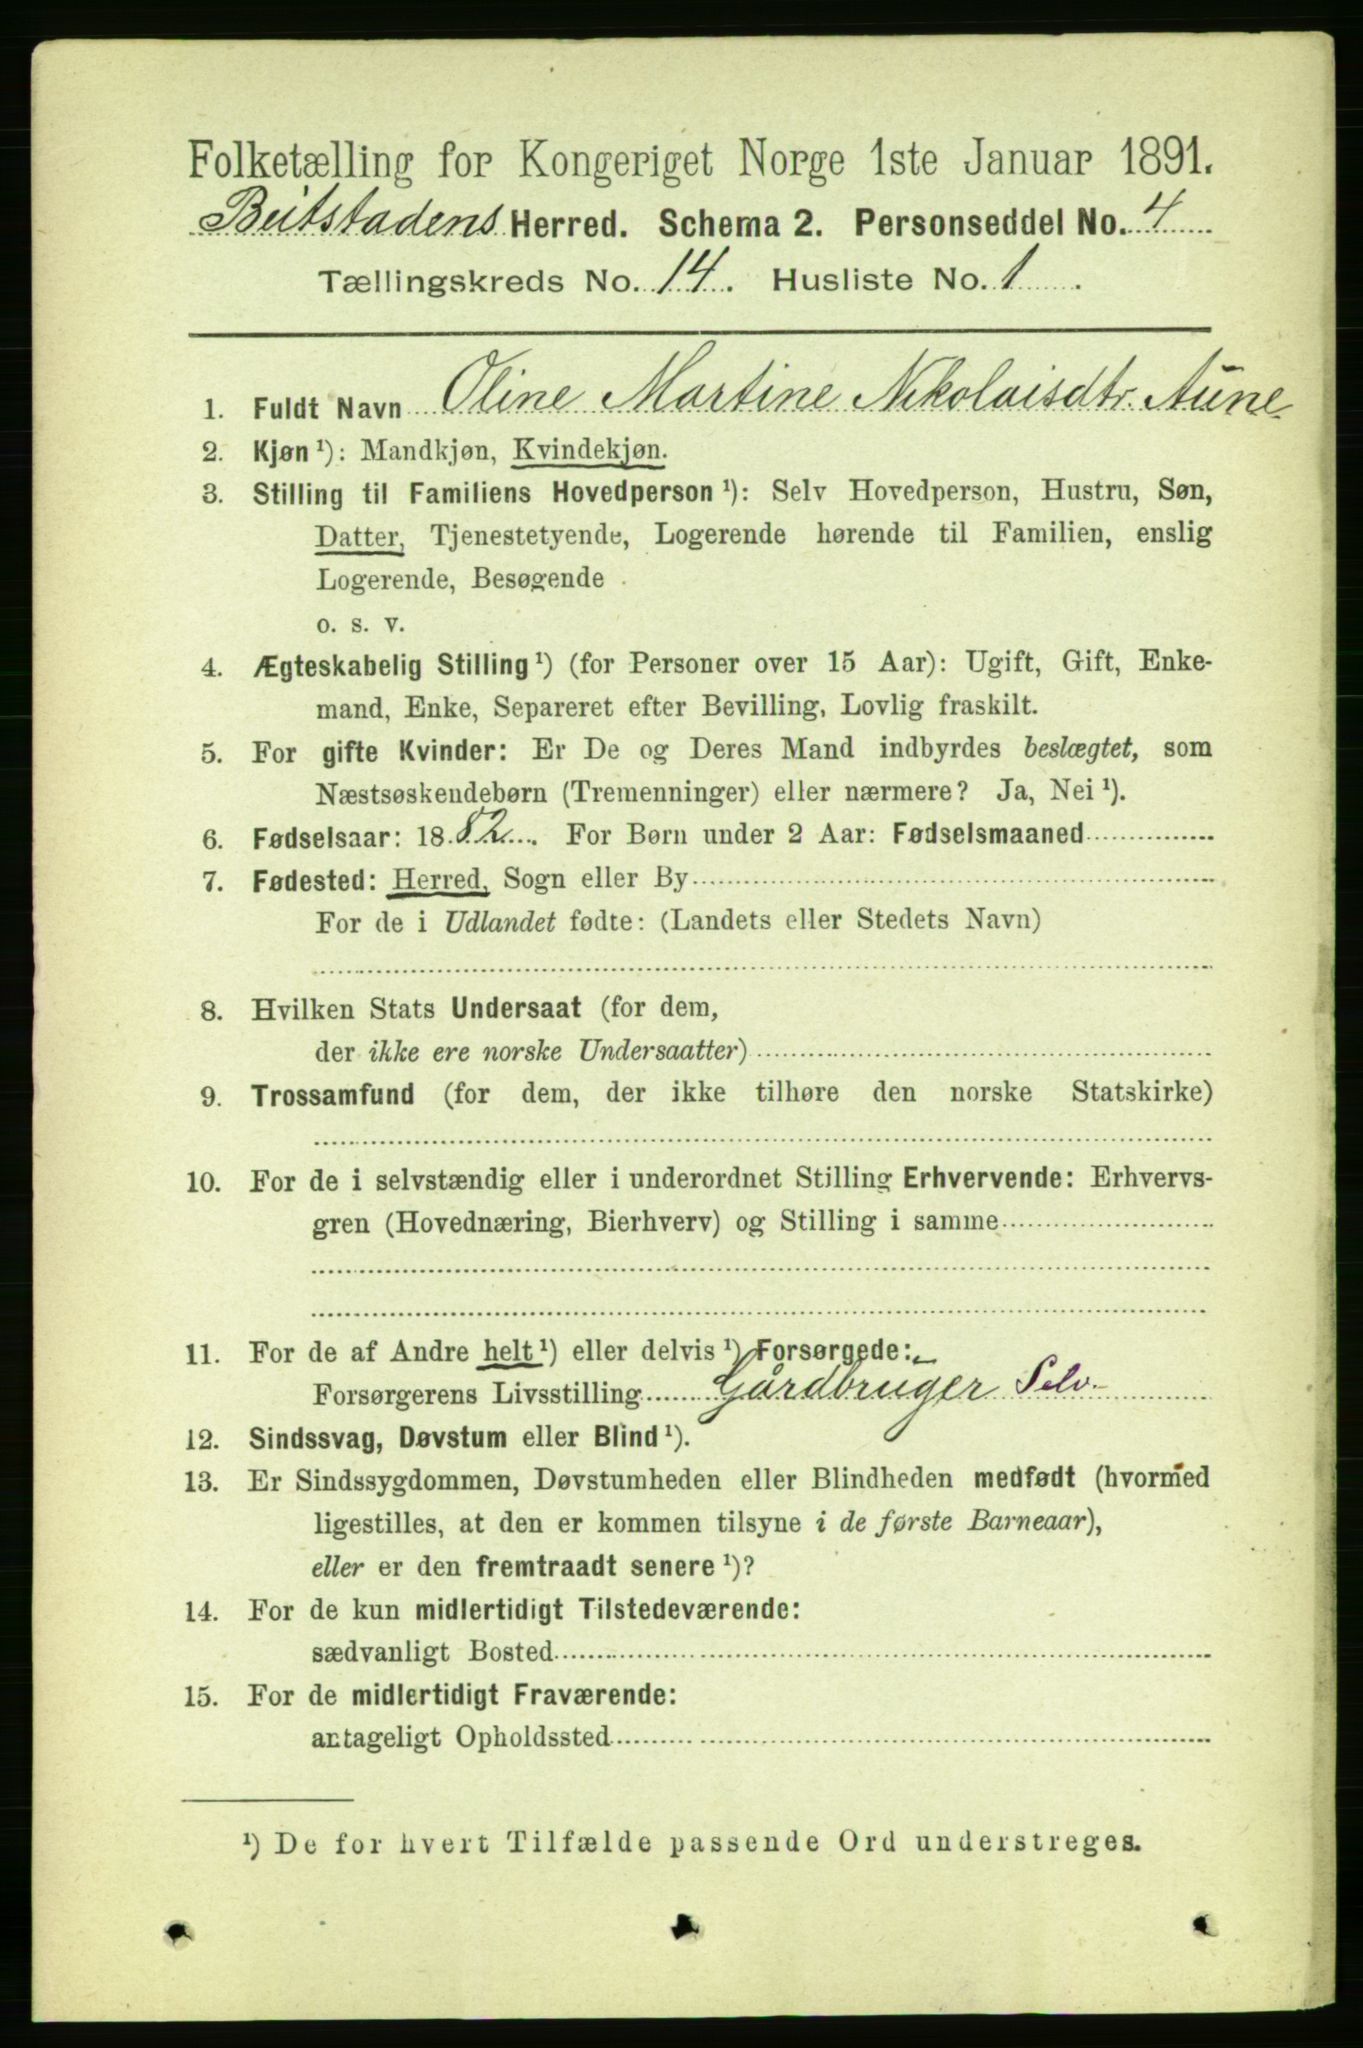 Folketælling for Kongeriget Norge 1ste Januar 1891.
Beitstadens Herred. Schema 2. Personseddel No. 4
Tællingskreds No. 14. Husliste No. 1.
1. Fuldt Navn Oline Martine Nikolaisdtr. Aune
2. Kjøn ¹): Mandkjøn, Kvindekjøn.
3. Stilling til Familiens Hovedperson ¹): Selv Hovedperson, Hustru, Søn,
Datter, Tjenestetyende, Logerende hørende til Familien, enslig
Logerende, Besøgende
o. s. v.
4. Ægteskabelig Stilling ¹) (for Personer over 15 Aar): Ugift, Gift, Enke-
mand, Enke, Separeret efter Bevilling, Lovlig fraskilt.
5. For gifte Kvinder: Er De og Deres Mand indbyrdes beslægtet, som
Næstsøskendebørn (Tremenninger) eller nærmere? Ja, Nei ¹).
6. Fødselsaar: 1882. For Børn under 2 Aar: Fødselsmaaned
7. Fødested: Herred, Sogn eller By
For de i Udlandet fødte: (Landets eller Stedets Navn)
8. Hvilken Stats Undersaat (for dem,
der ikke ere norske Undersaatter)
9. Trossamfund (for dem, der ikke tilhøre den norske Statskirke)
10. For de i selvstændig eller i underordnet Stilling Erhvervende: Erhvervs-
gren (Hovednæring, Bierhverv) og Stilling i samme
11. For de af Andre helt ¹) eller delvis ¹) Forsørgede:
Forsørgerens Livsstilling Gårdbruger Selv.
12. Sindssvag, Døvstum eller Blind ¹).
13. Er Sindssygdommen, Døvstumheden eller Blindheden medfødt (hvormed
ligestilles, at den er kommen tilsyne i de første Barneaar),
eller er den fremtraadt senere ¹)?
14. For de kun midlertidigt Tilstedeværende:
sædvanligt Bosted
15. For de midlertidigt Fraværende:
antageligt Opholdssted
¹) De for hvert Tilfælde passende Ord understreges.